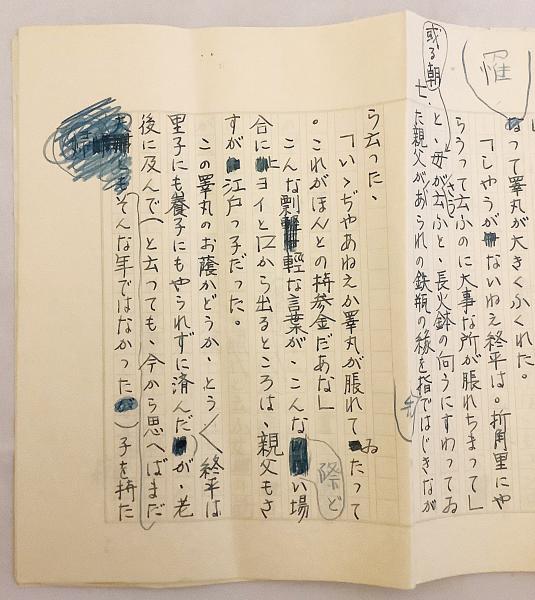 なって睾丸が大きくふくれた。
「しやうがないねえ終平は。折角里にや
らうって云ふのに大事な所が脹れちまって」
或る朝、
と、母が云ふと、長火鉢の向うにすわってゐ
さう
た親父があられの鉄瓶の縁を指ではじきなが
ら云った、
「いゝぢやあねえか睾丸が脹れてゐたって
。これがほんとの持参金だあな」
こんな剽軽な言葉が、こんな際どい場
合にヒョイと口から出るところは、親父もさ
すが江戸っ子だった。
この睾丸のお蔭かどうか、とう〱終平は
里子にも養子にもやられずに済んだが、老
後に及んで(と云っても、今から思へばまだ
そんな年ではなかった)子を持た